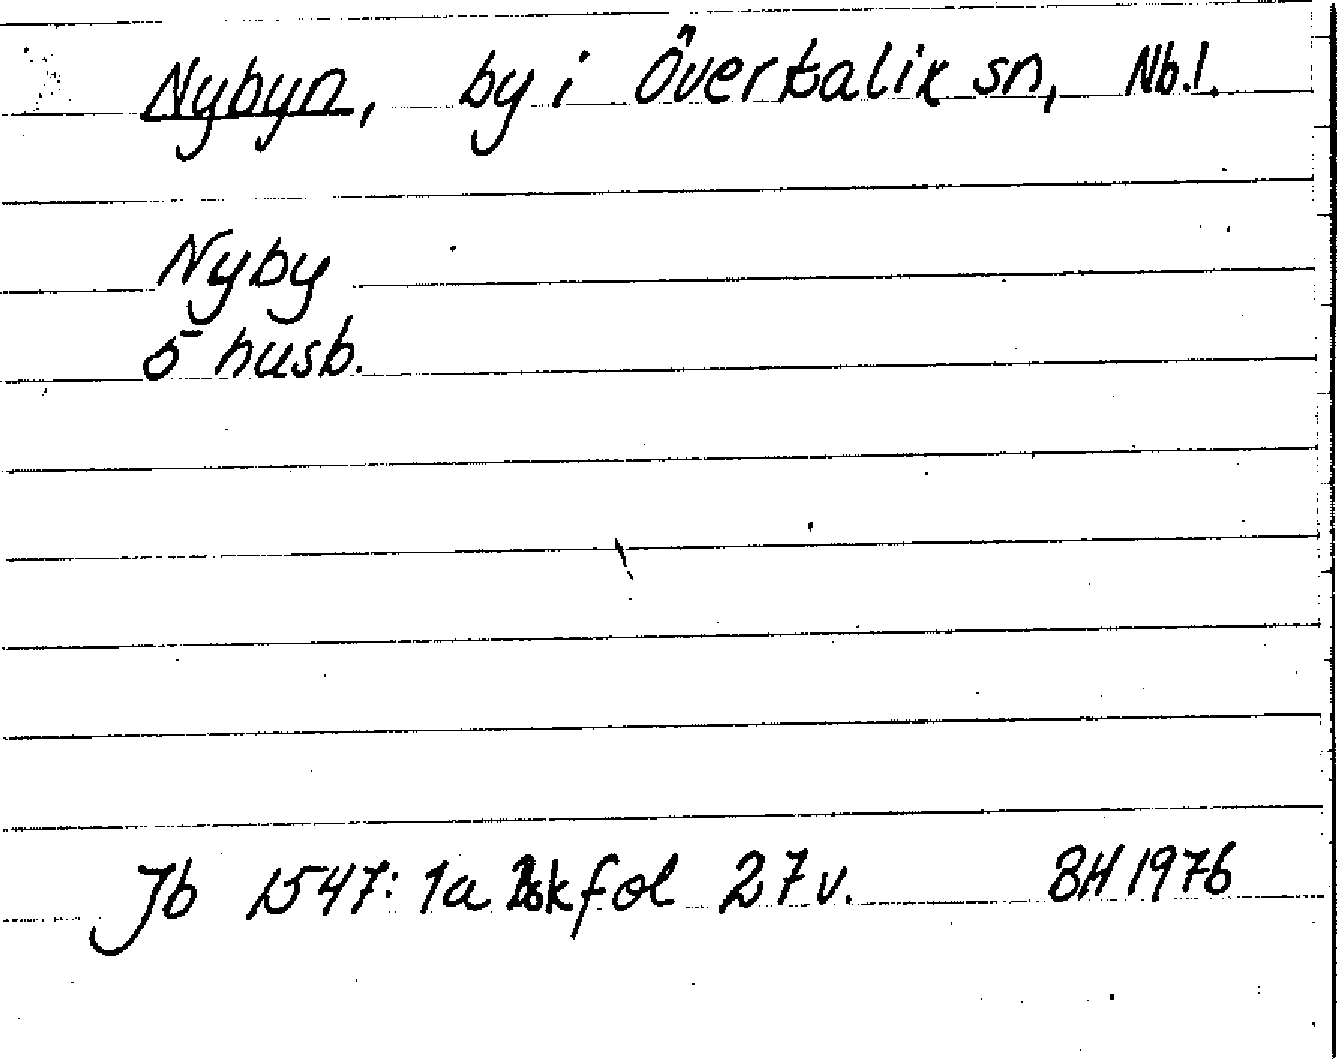 Nybyn, by i Överkalix sn, Nb.l.
Nyby
5 husb.
Jb 1547:1a Bskfol 27v. BH 1976